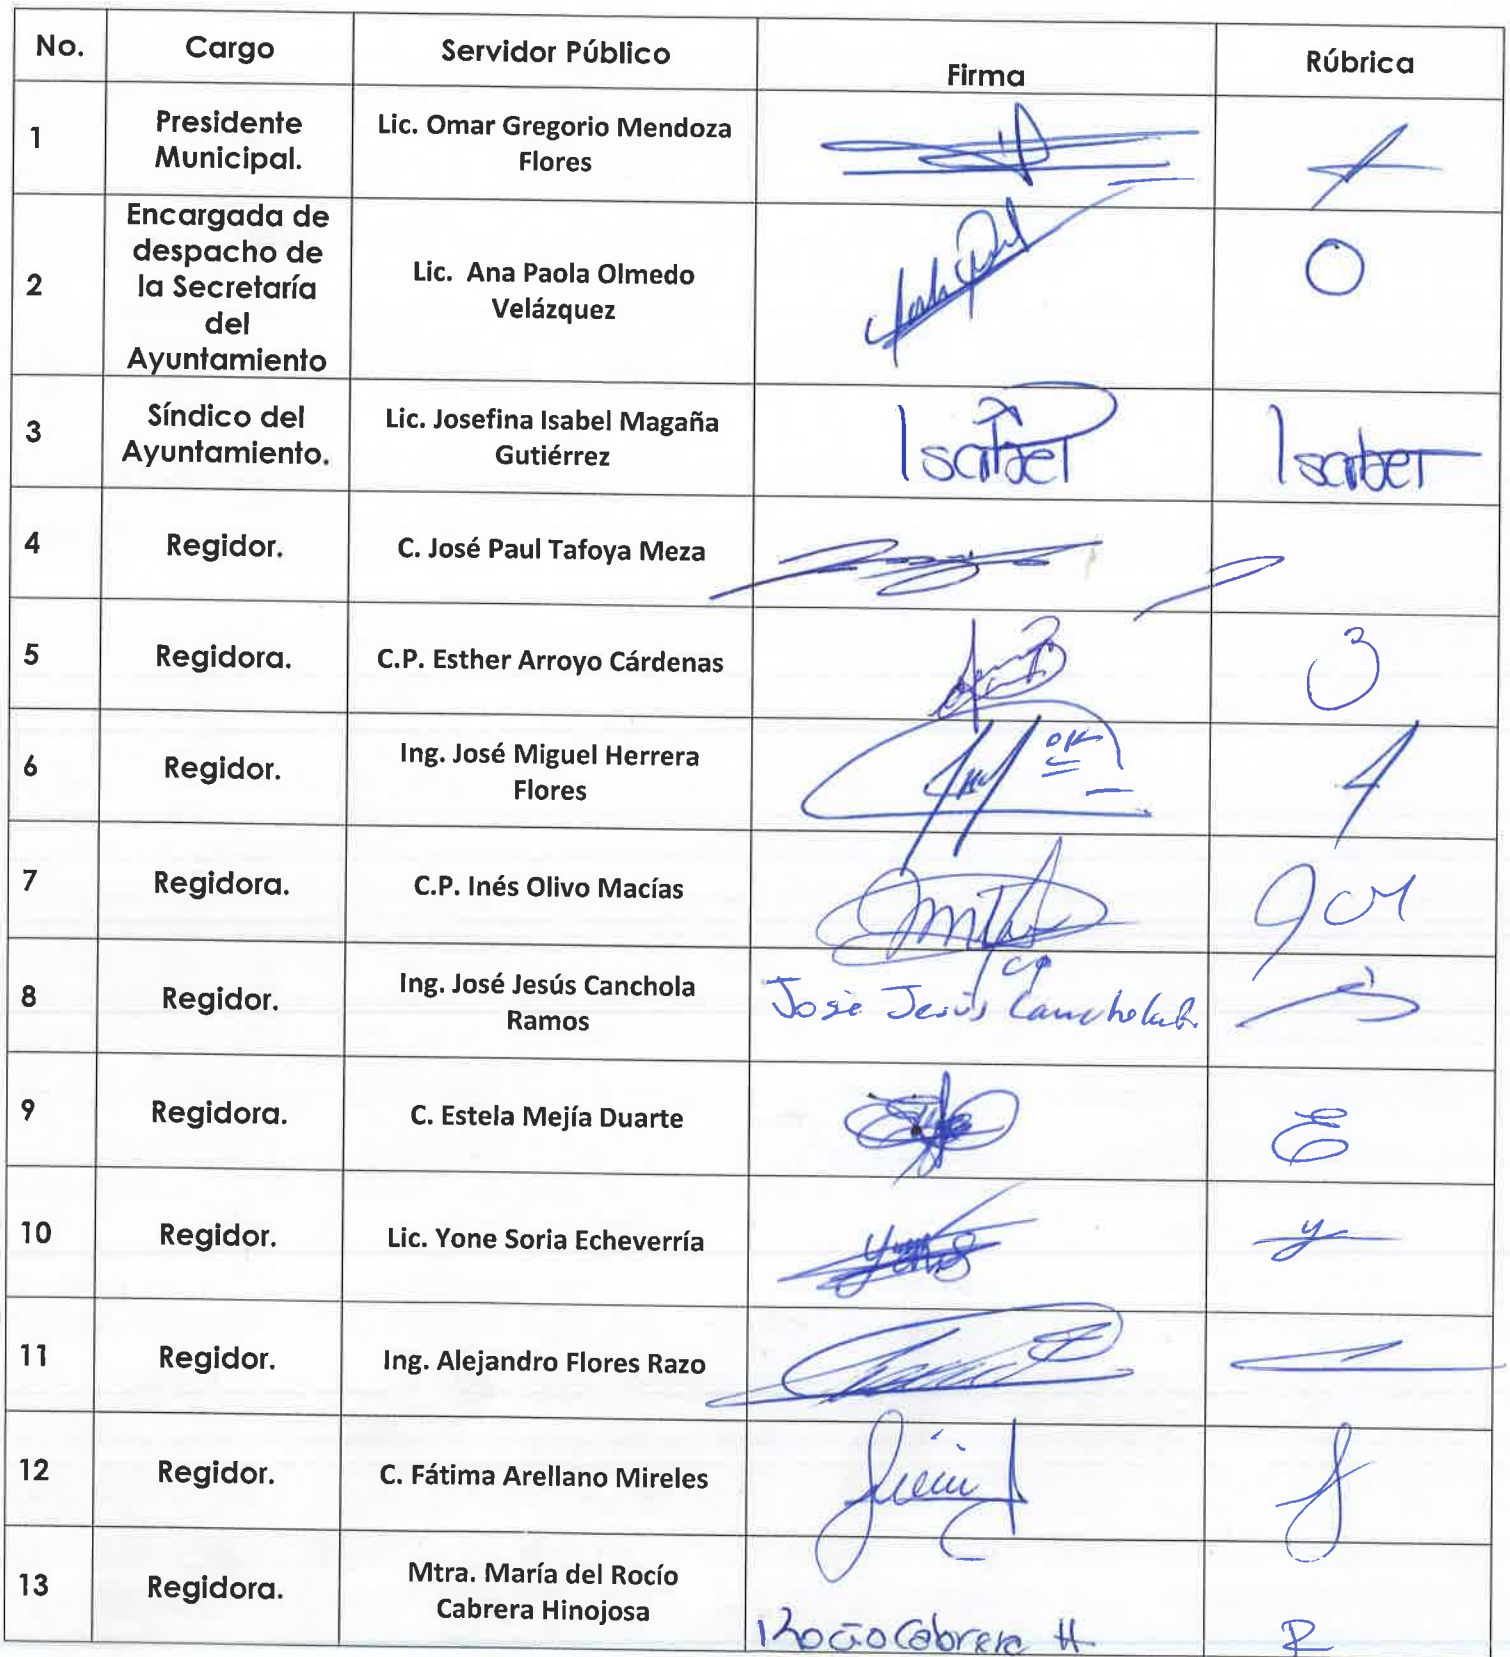 No. Cargo Servidor Público Firma Rúbrica
1 Presidente Municipal. Lic. Omar Gregorio Mendoza Flores
2 Encargada de despacho de la Secretaría del Ayuntamiento Lic. Ana Paola Olmedo Velázquez O
3 Síndico del Ayuntamiento. Lic. Josefina Isabel Magaña Gutiérrez Isabel Isabel
4 Regidor. C. José Paul Tafoya Meza
5 Regidora. C.P. Esther Arroyo Cárdenas
6 Regidor. Ing. José Miguel Herrera Flores
7 Regidora. C.P. Inés Olivo Macías
8 Regidor. Ing. José Jesús Canchola Ramos José Jesús Canchola R.
9 Regidora. C. Estela Mejía Duarte E
10 Regidor. Lic. Yone Soria Echeverría y
11 Regidor. Ing. Alejandro Flores Razo
12 Regidor. C. Fátima Arellano Mireles
13 Regidora. Mtra. María del Rocío Cabrera Hinojosa Rocío Cabrera H. R